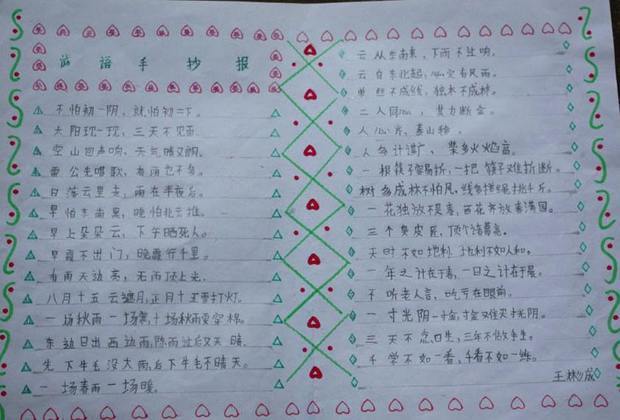 谚语手抄报
不怕初一阴，就怕初二下。
太阳现一现，三天不见面。
空山回声响，天气晴又朗。
雷公先唱歌，有雨也不多。
日落云里走，雨在半夜后。
早怕东南黑，晚怕北云推。
早上朵朵云，下午晒死人。
早霞不出门，晚霞行千里。
有雨天边亮，无雨顶上光。
八月十五云遮月，正月十五雪打灯。
一场秋雨一场寒，十场秋雨要穿棉。
东边日出西边雨，阵雨过后又天晴。
先下牛毛没大雨，后下牛毛不晴天。
一场春雨一场暖。
云从东南来，下雨不过响。
云自东北起，必定有风雨。
单丝不成线，独木不成林。
二人同心，其力断金。
人心齐，泰山移。
人多计谋广，柴多火焰高。
一根筷子容易折，一把筷子难折断。
树多成林不怕风，线多拧绳挑千斤。
一花独放不是春，百花齐放春满园。
三个臭皮匠，顶个诸葛亮。
天时不如地利，地利不如人和。
一年之计在于春，一日之计在于晨。
不听老人言，吃亏在眼前。
一寸光阴一寸金，寸金难买寸光阴。
三天不念口生，三年不做手生。
千学不如一看，千看不如一练。